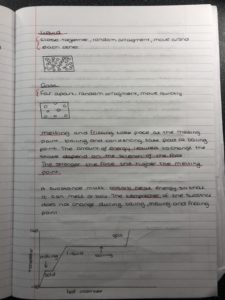 Liquid
Close together, random arragment, move around
each other
Gas
Far apart, random arragment, move quickly
Melting and frizzing take place at the melting
point, boiling and condensing take place at boiling
point. The amount of energy needed to change the
state depend on the strength of the force
The stronger the force the higher the melting
point.
A substance must absorb heat energy so that
it can melt or boil. The temperature of the substance
does not change during boiling, melting and frizzing
point
gas
liquid
boiling
melting
solid